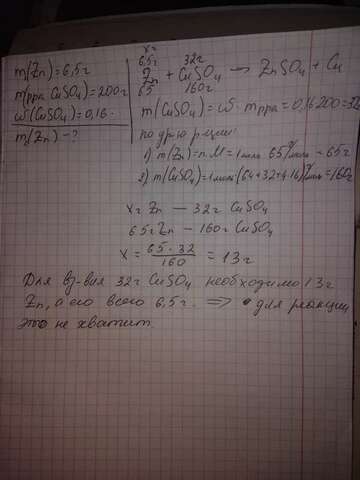 m(Zn)=6,5г
m(рра CuSO₄)=200г
ω(CuSO₄)=0,16
m(Zn)-?
x г
6,5г 32г
Zn + CuSO₄ → ZnSO₄ + Cu
65 160г
m(CuSO₄)=ω·mрра=0,16·200=32
по ур-ю
1) m(Zn)=n·M=1моль·65г/моль=65г
2) m(CuSO₄)=1моль·(64+32+4·16)г/моль=160г
xг Zn — 32г CuSO₄
65гZn — 160г CuSO₄
x = 65·32/160 = 13г
Для вз-вия 32г CuSO₄ необходимо 13г
Zn, а его всего 6,5г. ⇒ для реакции
это не хватит.